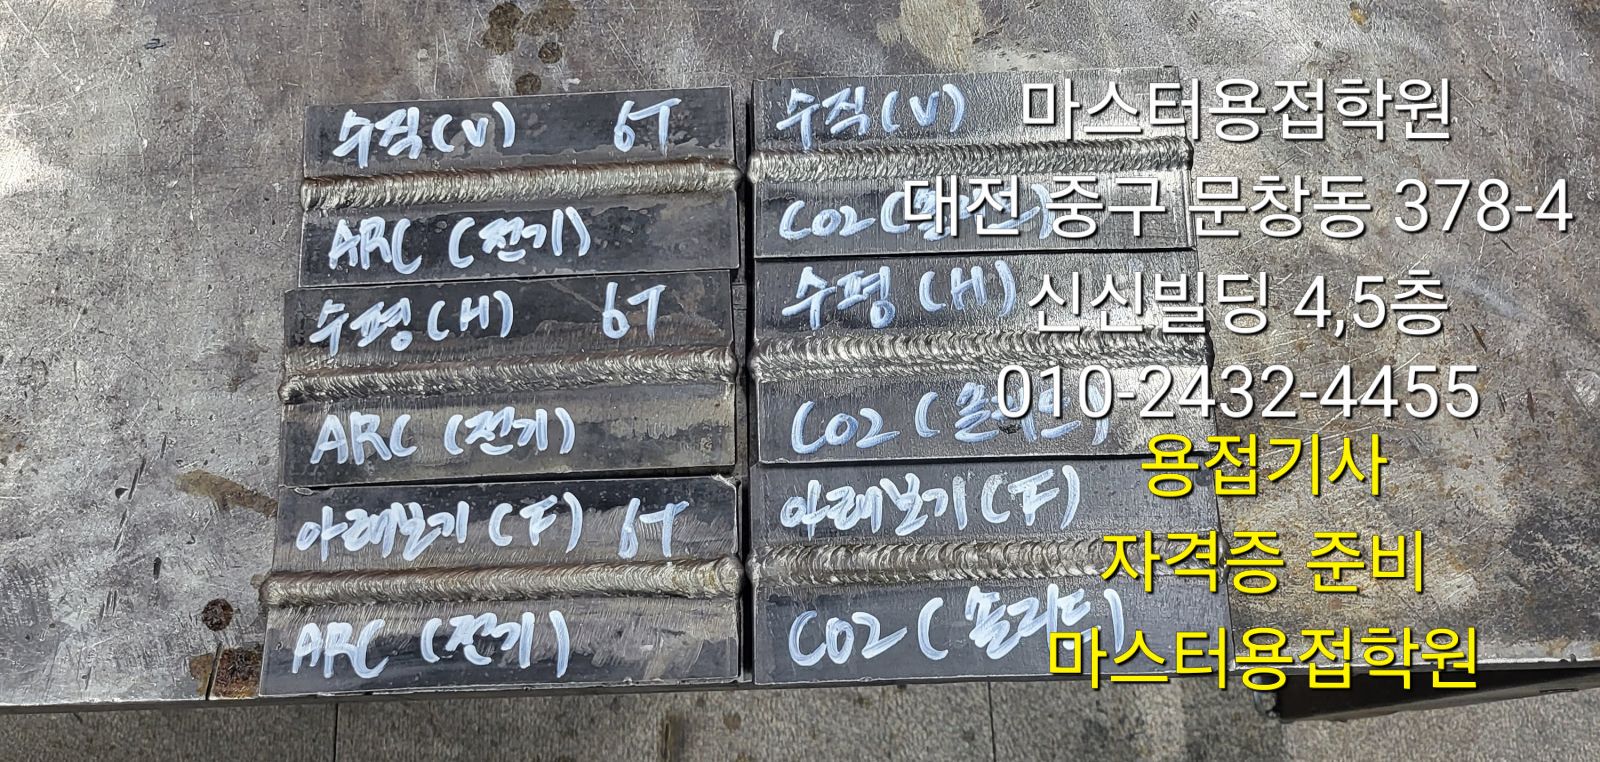 수직(V) 6T
ARC (전기)
수평(H) 6T
ARC (전기)
아래보기(F) 6T
ARC (전기)
수직(V)
CO2(
수평(H)
CO2(솔리드)
아래보기(F)
CO2(솔리드)
마스터용접학원
대전 중구 문창동 378-4
신신빌딩 4,5층
010-2432-4455
용접기사
자격증 준비
마스터용접학원